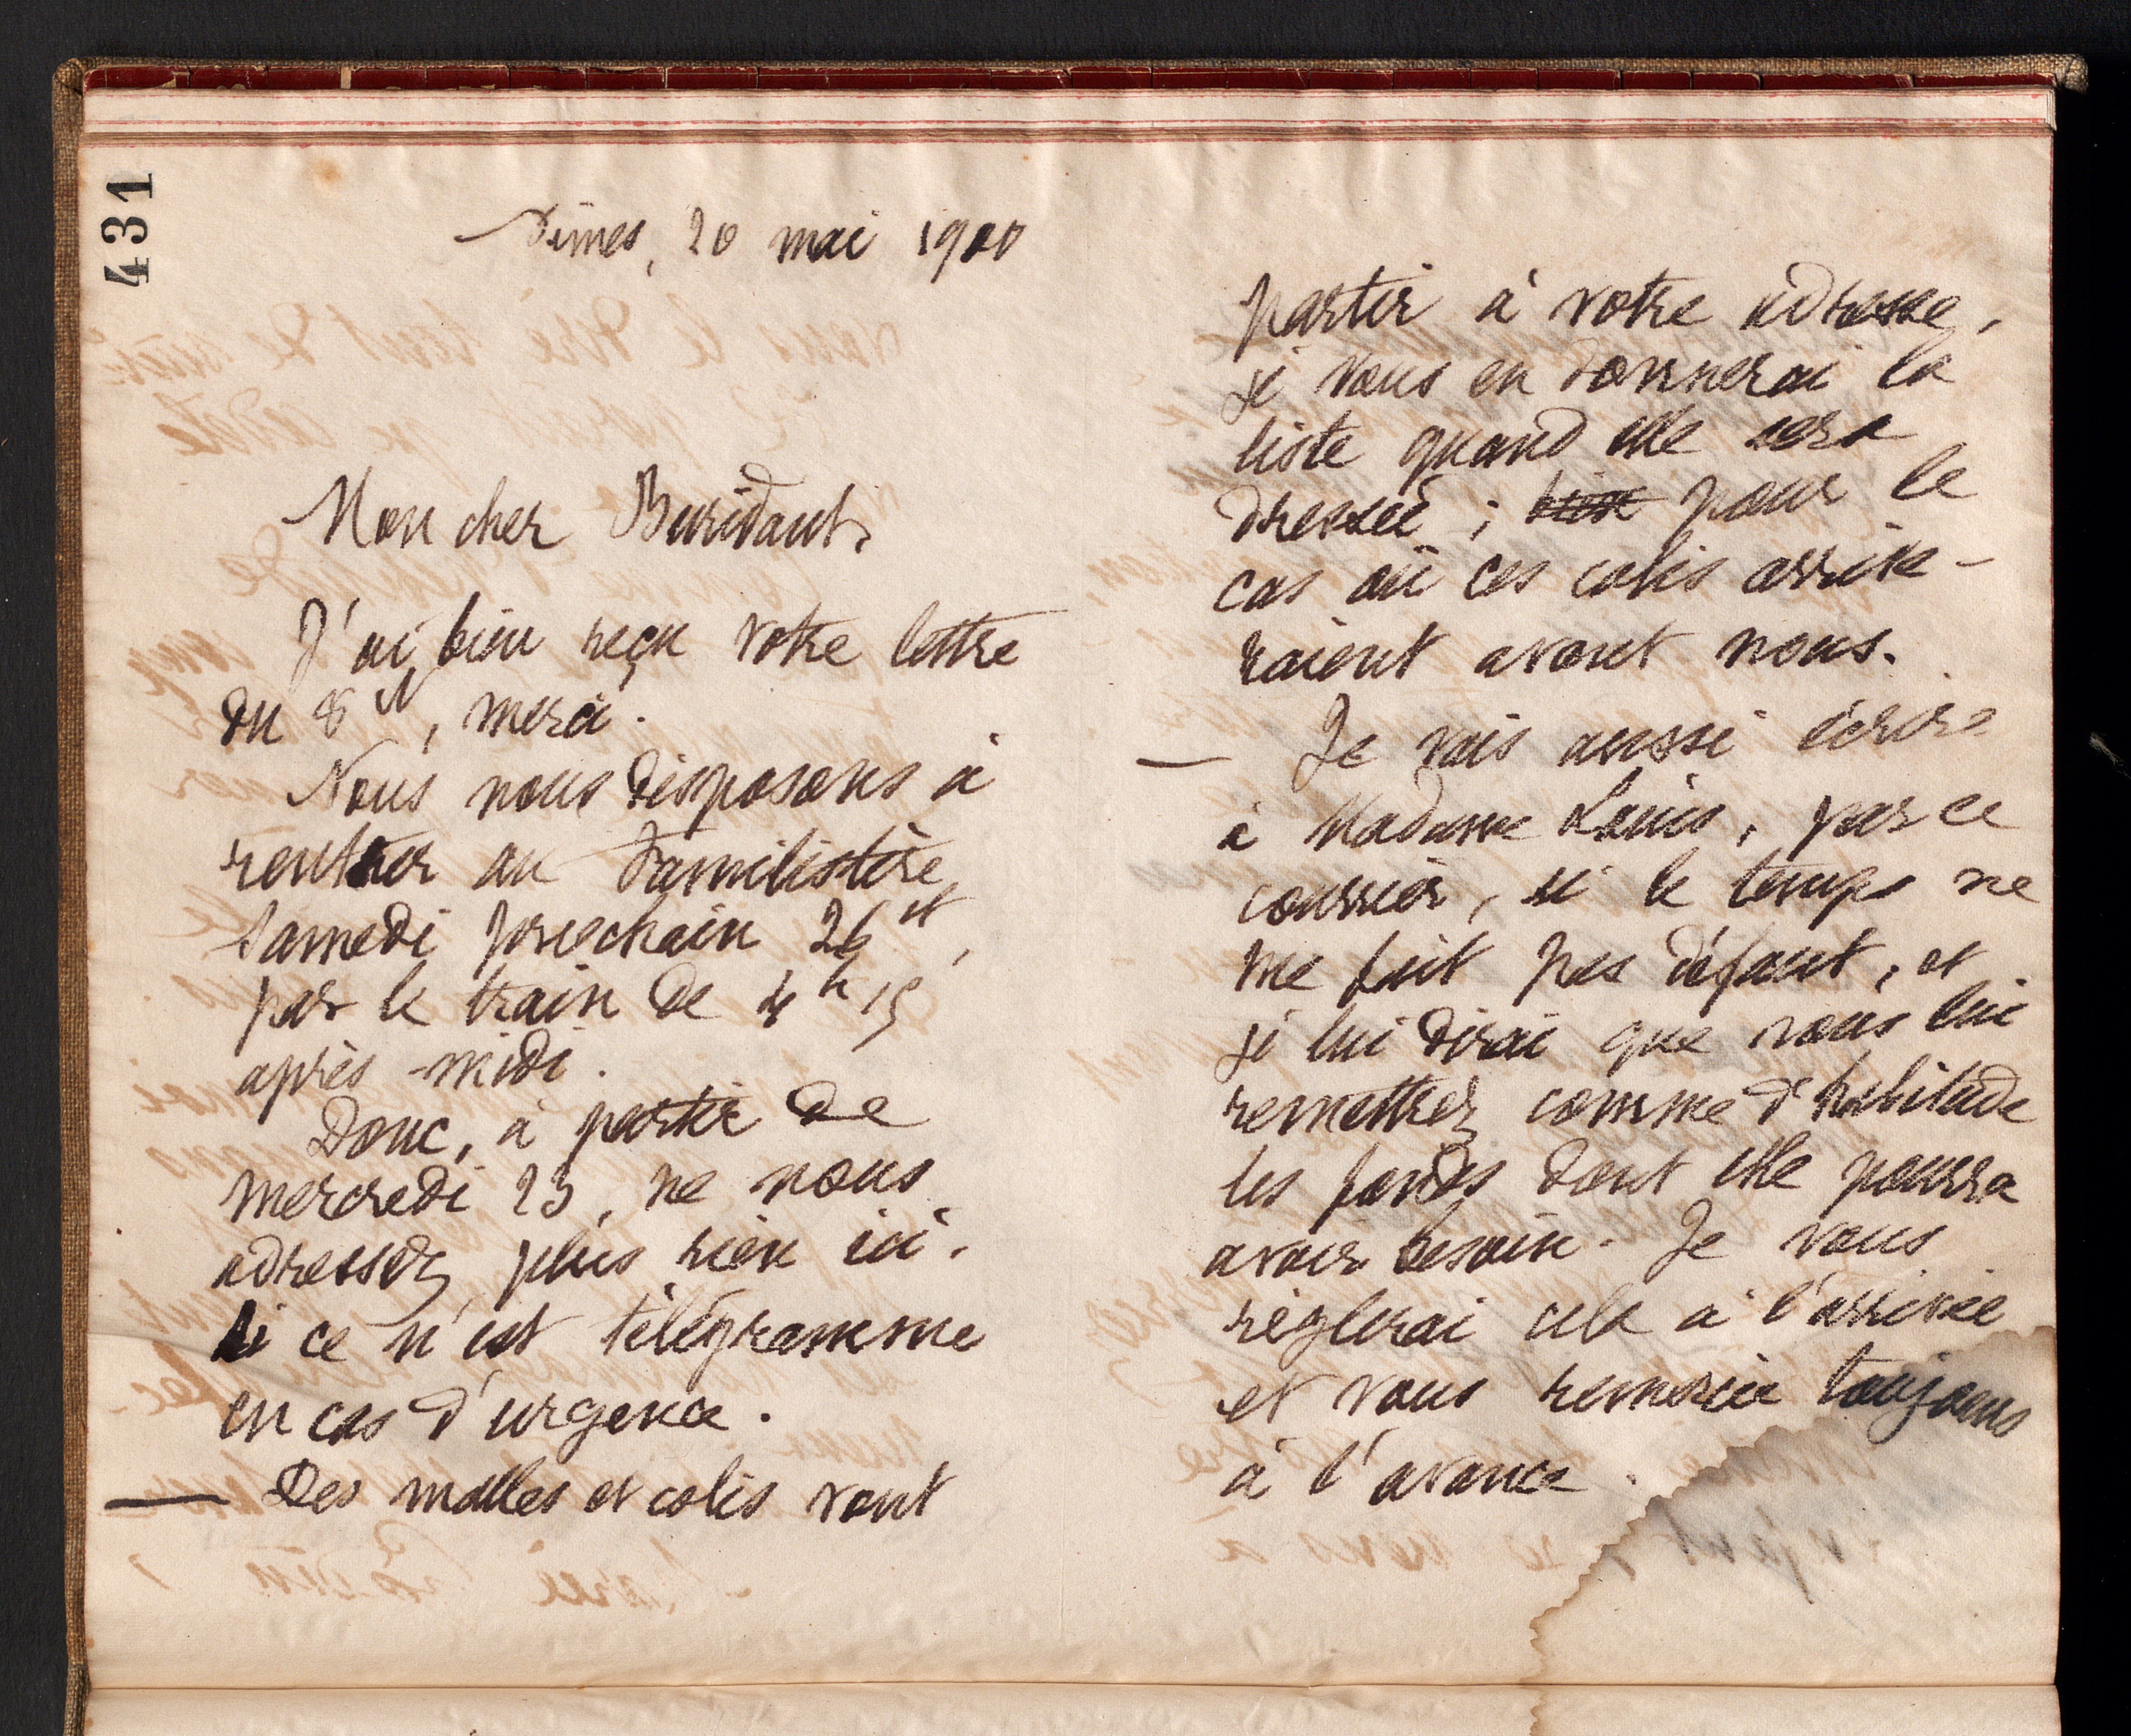 431
Nîmes, 20 mai 1900
Mon cher Buridant,
J'ai bien reçu votre lettre
du 8 ct, merci.
Nous nous disposons à
rentrer au Familistère
Samedi prochain 26 ct,
par le train de 4h 15
après-midi.
Donc, à partir de
mercredi 23, ne nous
adressez plus rien ici,
si ce n'est télégramme
en cas d'urgence.
— Des malles et colis vont
partir à votre adresse,
je vous en donnerai la
liste quand elle sera
dressée ; pour le
cas où ces colis arrive-
raient avant nous.
— Je vais aussi écrire
à Madame Louis, par ce
courrier, si le temps ne
me fait pas défaut, et
je lui dirai que vous lui
remettrez comme d'habitude
les fonds dont elle pourra
avoir besoin. Je vous
règlerai cela à l'arrivée
et vous remercie toujours
à l'avance.